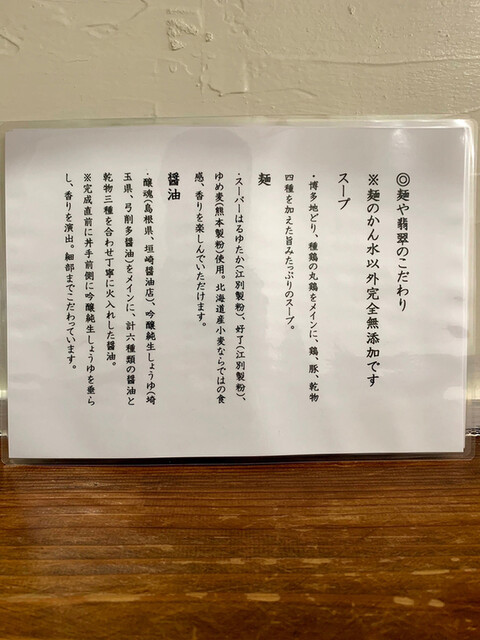 ◎麺や翡翠のこだわり
※麺のかん水以外完全無添加です
スープ
・博多地どり、種鶏の丸鶏をメインに、鶏、豚、乾物
四種を加えた旨みたっぷりのスープ。
麺
・スーパーはるゆたか(江別製粉)、好了(江別製粉)、
ゆめ麦(熊本製粉)使用。北海道産小麦ならではの食
感、香りを楽しんでいただけます。
醤油
・醸魂(島根県 垣崎醤油店)、吟醸純生しょうゆ(埼
玉県、弓削多醤油)をメインに、計六種類の醤油と
乾物三種を合わせ丁寧に火入れした醤油。
※完成直前に丼手前側に吟醸純生しょうゆを垂ら
し、香りを演出。細部までこだわっています。